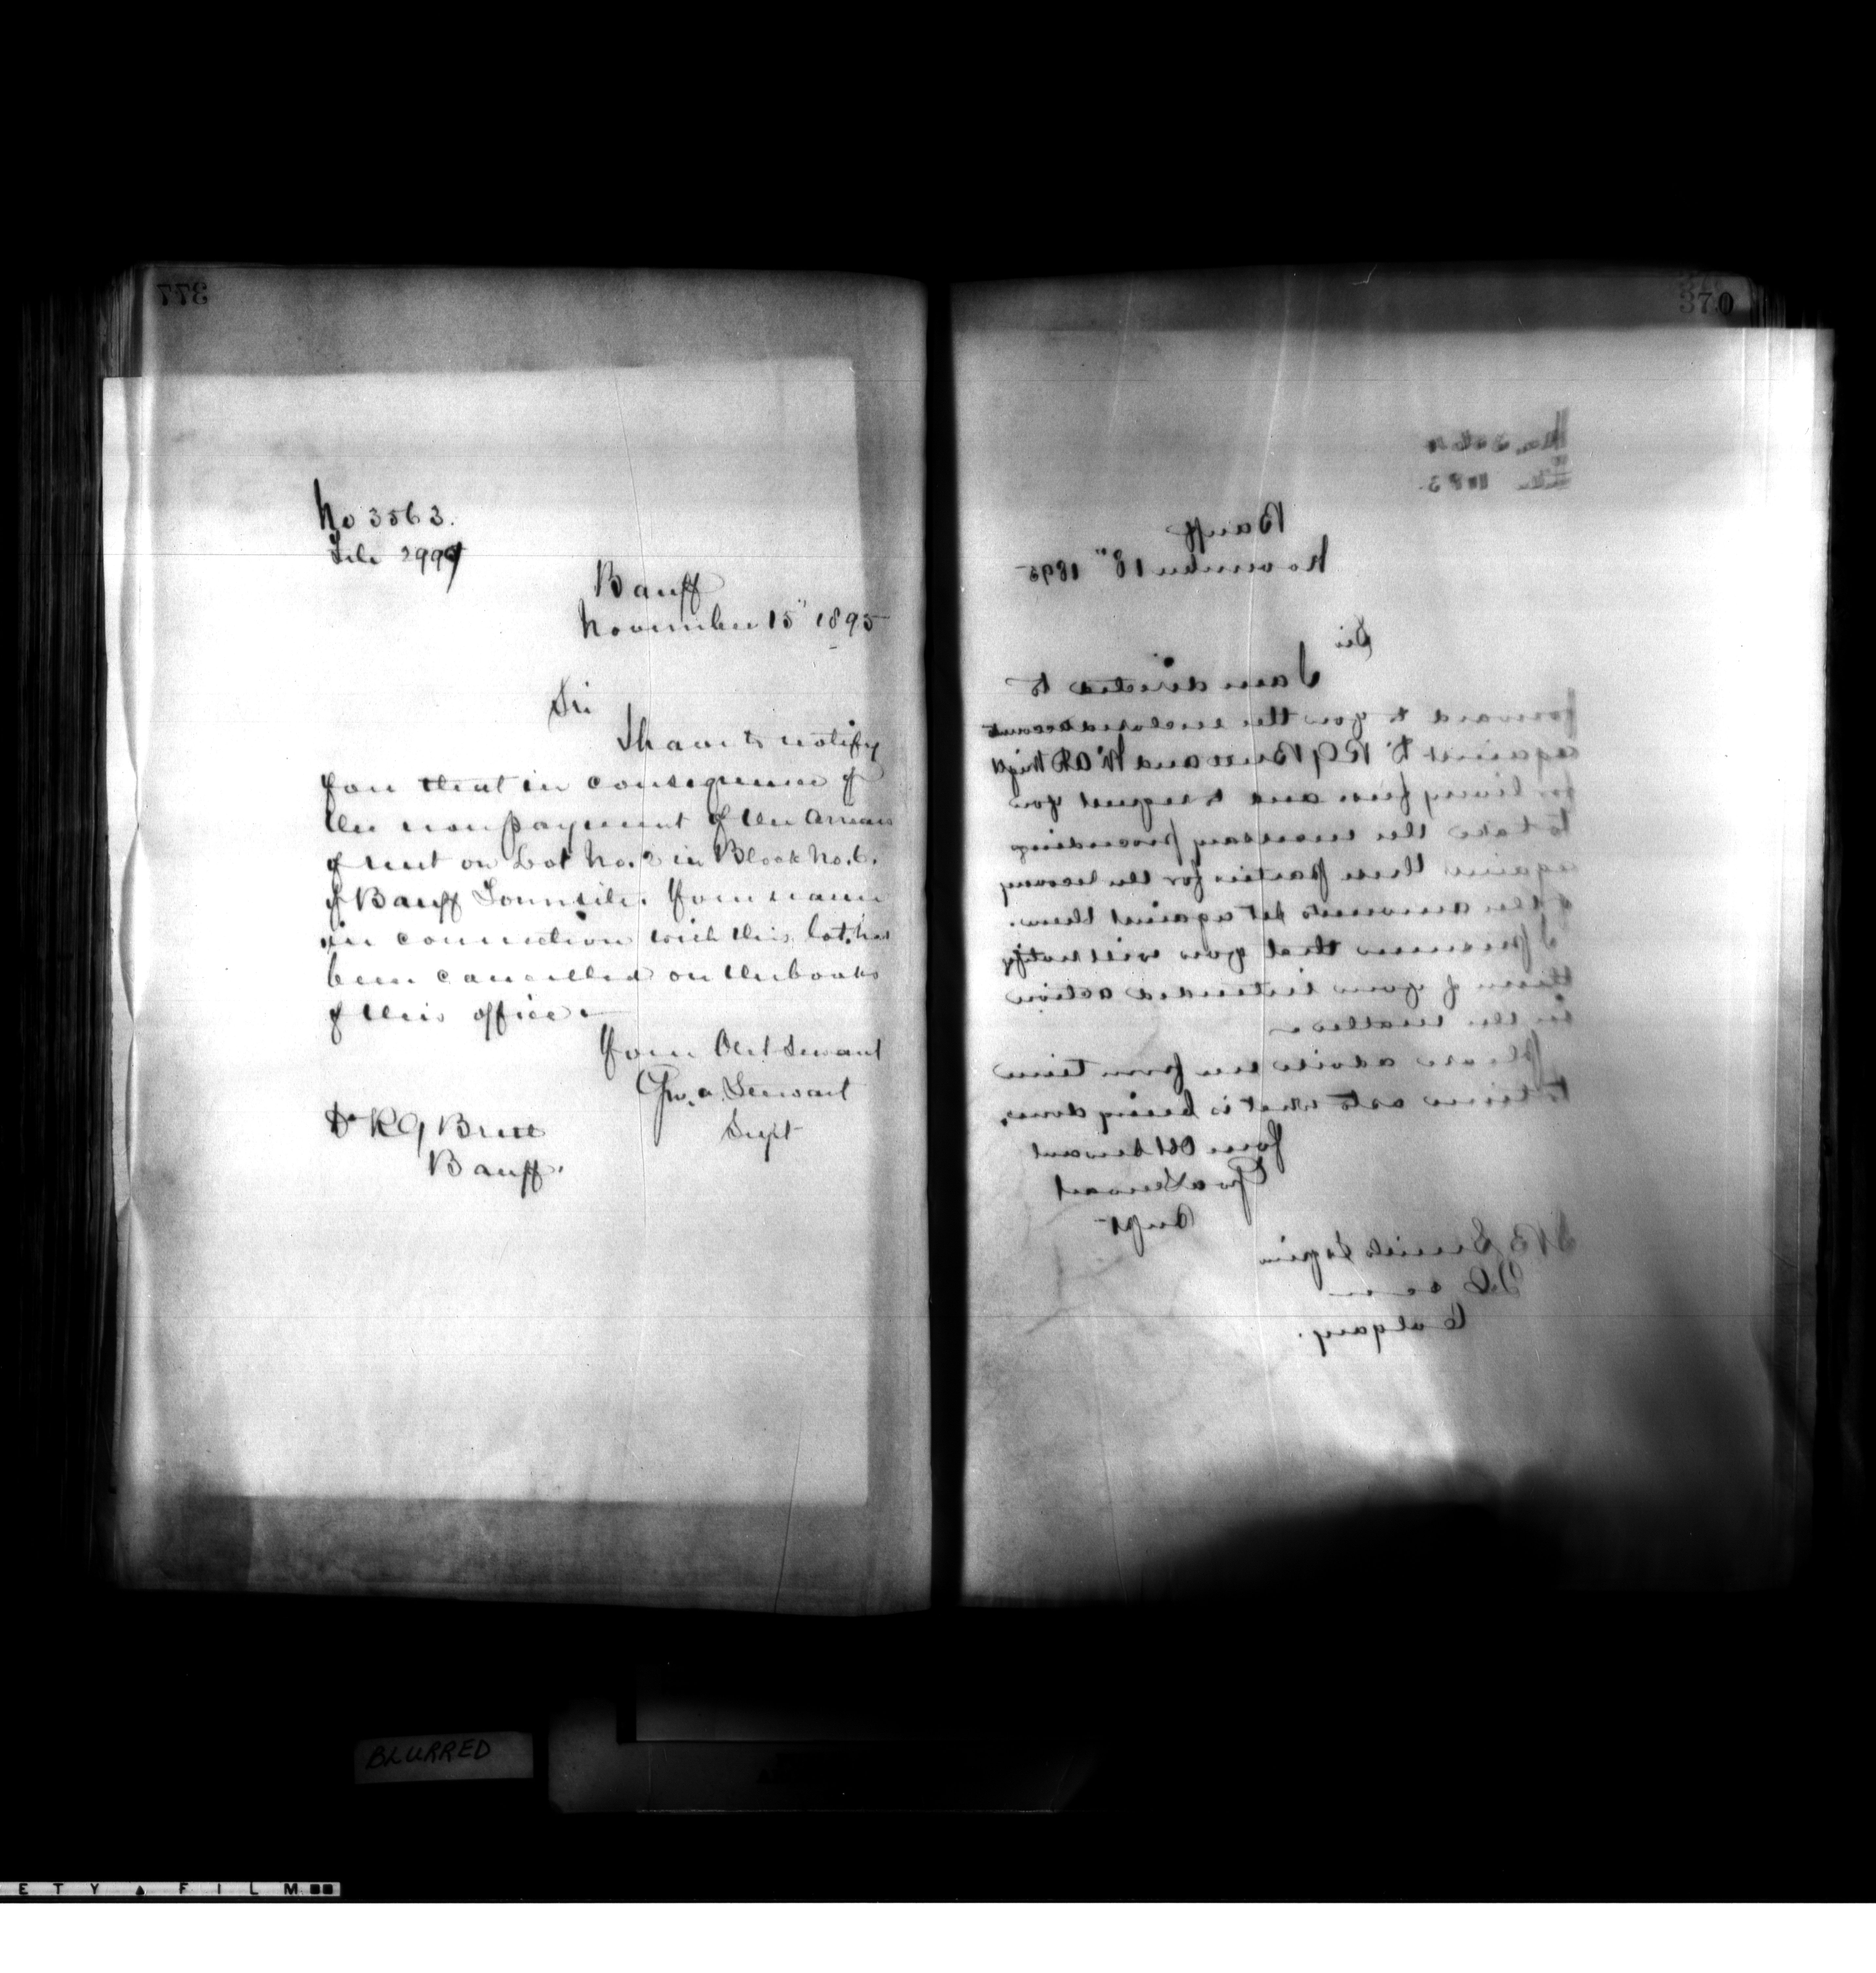 377
No 3563.
File 2999
Banff
November 15" 1895
Sir
I have to notify
you that in consequence of
the non payment of the arrears
of rent on Lot No. 2 in Block No. 6.
of Banff Townsite. Your name
in connection with this lot, has
been cancelled on the books
of this office.
Your Obt Servant
Geo. A. Stewart
Supt
Dr R G Brett
Banff.
370
No.
File
Banff
November 18" 1895
Sir
I am directed to
forward to you the enclosed account
against Dr R G Brett and W A R
for livery fees and to request you
to take the necessary proceedings
against these parties for the recovery
of the amounts set against them.
I presume that you will notify
them of your intended action
in the matter
Please advise me from time
to time as to what is being done.
Your Obt Servant
Geo A Stewart
Supt
Calgary.
BLURRED
ETY FILM